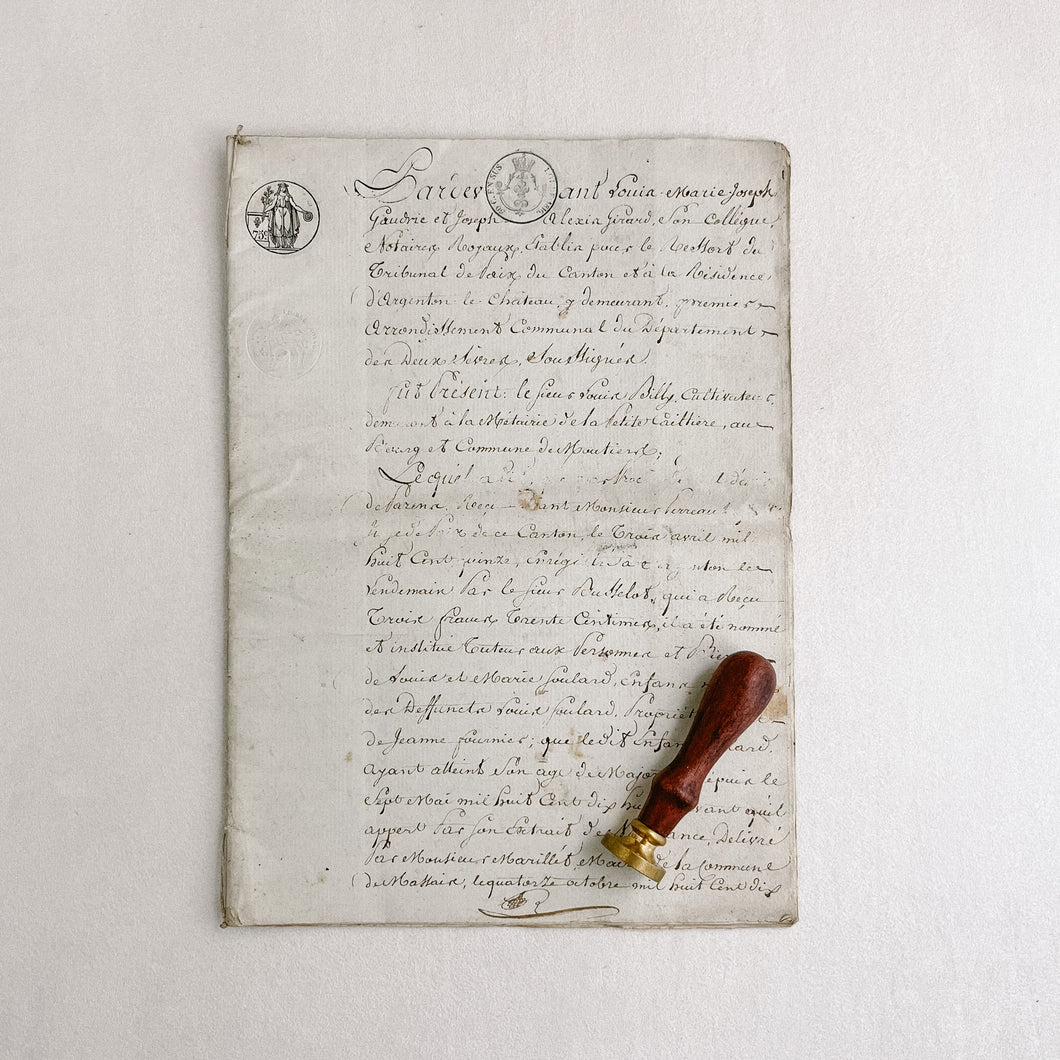 75c
Pardevant Louis-Marie-Joseph
Gaudrie et Joseph Alexis Girard, Son Collègue,
Notaires Royaux, Etablis pour le Ressort du
Tribunal de Paix du Canton et à la Résidence
d'Argenton-le-Château, y demeurant, premier
Arrondissement Communal du Département
des Deux Sèvres, Soussignés.
fut Présent: le Sieur Louis Billy, Cultivateur,
demeurant à la Métairie de la Petite, au
Bourg et Commune de Moutiers;
Lequel a
de Parens, Reçu Monsieur
Juge de Paix de ce Canton, le Trois avril mil
huit Cent quinze, Enrégistré à Argenton le
Lendemain Par le Sieur Russelot, qui a Reçu
Trois francs Trente Centimes, il a été nommé
et institué Tuteur aux Personnes et
de Louis et Marie Soulard, Enfans
des Deffuncts Louis Soulard, Propriét
de Jeanne fournier; que ledit Enfant
ayant atteint Son age de Major depuis le
Sept Mai mil huit Cent dix qu'il
appert Par Son Extrait de Naissance, Delivré
Par Monsieur Marillét, Maire de la Commune
de Massais, le quatorze octobre mil huit Cent dix